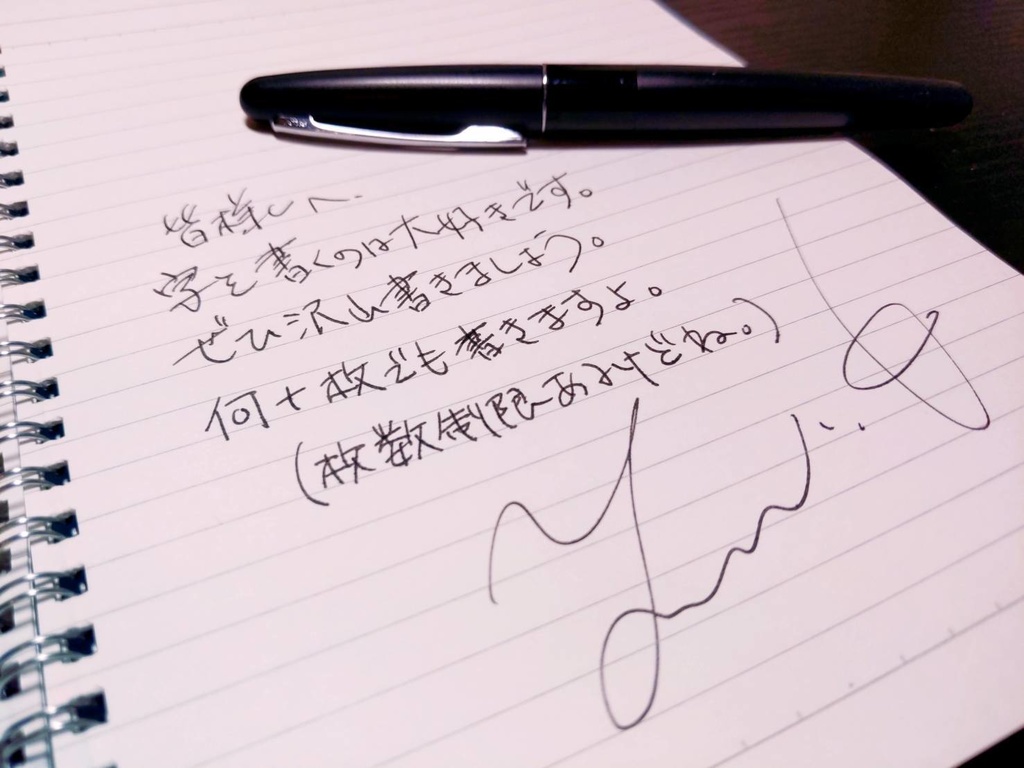 皆様へ
字を書くのは大好きです。
ぜひ沢山書きましょう。
何十枚でも書きますよ。
(枚数制限あるけどね。)